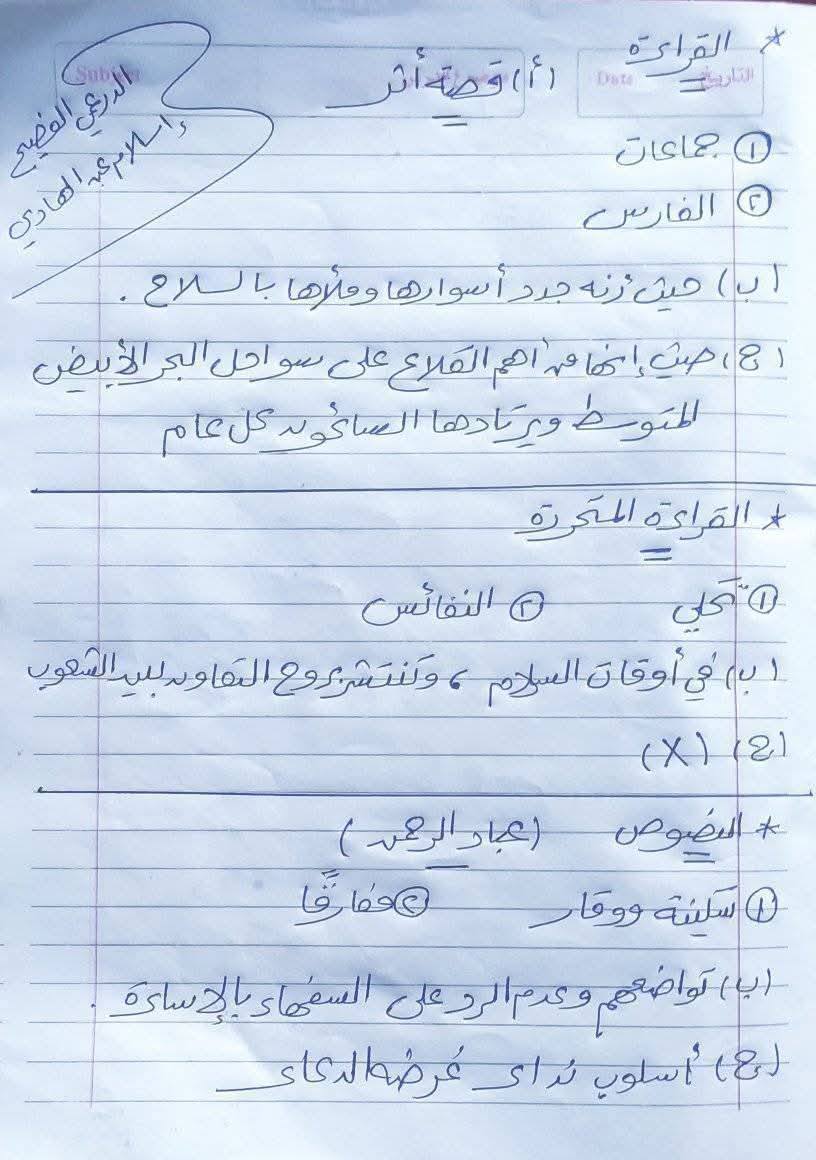 * القراءة
Subject
Date
التاريخ
(أ) قصة أثر
الدرعي الفصيح
إسلام عبد الهادي
١ جماعات
٢ الفارس
(ب) حيث أنه جدد أسوارها وملأها بالسلاح .
(ج) حيث إنها من أهم القلاع على سواحل البحر الأبيض
المتوسط ويرتادها السائحون كل عام
* القراءة المتحررة
١ تحلي ٢ النفائس
(ب) في أوقات السلام ، وتنتشر روح التعاون بين الشعوب
(ج) (X)
* النصوص (عباد الرحمن)
١ سكينة ووقار ٢ مفارقًا
(ب) تواضعهم وعدم الرد على السفهاء بالإساءة .
(ج) أسلوب نداء غرضه الدعاء